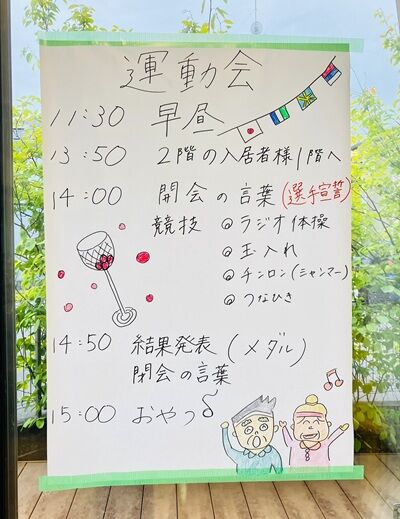 運動会
11:30 早昼
13:50 2階の入居者様1階へ
14:00 開会の言葉(選手宣誓)
競技 ◎ラジオ体操
◎玉入れ
◎チンロン(ミャンマー)
◎つなひき
14:50 結果発表(メダル)
閉会の言葉
15:00 おやつ